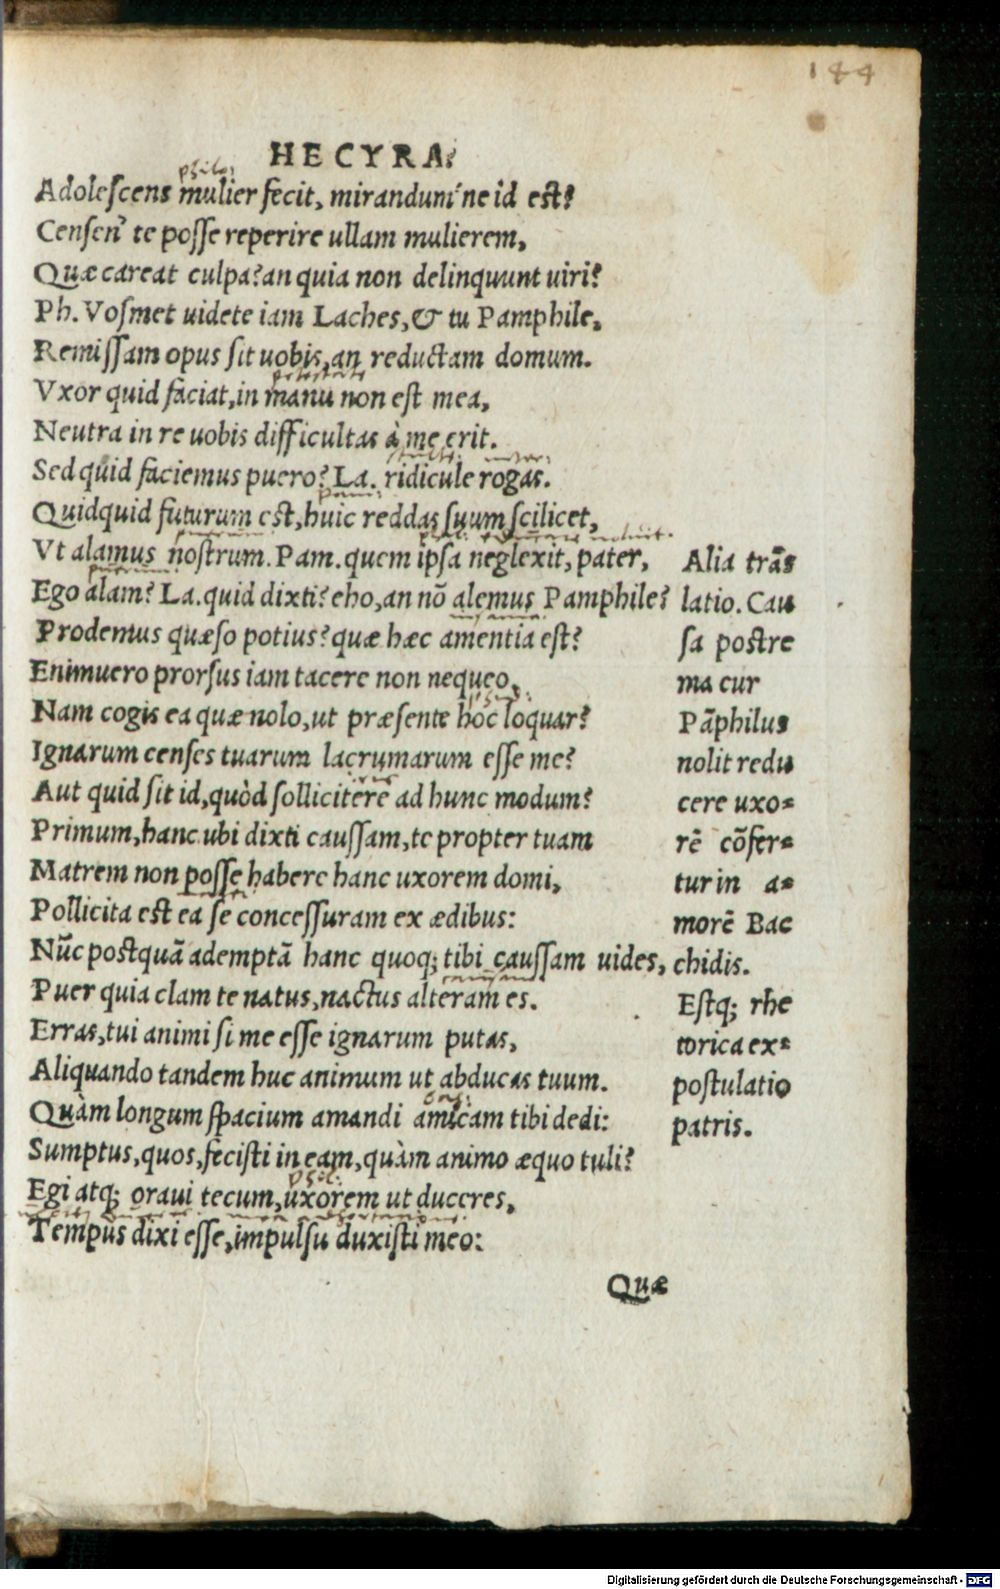 144
HECYRA.
Adolescens mulier fecit, mirandum'ne id est?
Censen' te posse reperire ullam mulierem,
Quæ careat culpa? an quia non delinquunt uiri?
Ph. Vosmet uidete iam Laches, & tu Pamphile,
Remissam opus sit uobis, an reductam domum.
Vxor quid faciat, in manu non est mea,
Neutra in re uobis difficultas à me erit.
Sed quid faciemus puero? La. ridicule rogas.
Quidquid futurum est, huic reddas suum scilicet,
Vt alamus nostrum. Pam. quem ipsa neglexit, pater,
Ego alam? La. quid dixti? eho, an nō alemus Pamphile?
Prodemus quæso potius? quæ hæc amentia est?
Enimuero prorsus iam tacere non nequeo,
Nam cogis ea quæ nolo, ut præsente hoc loquar?
Ignarum censes tuarum lacrumarum esse me?
Aut quid sit id, quòd sollicitere ad hunc modum?
Primum, hanc ubi dixti caussam, te propter tuam
Matrem non posse habere hanc uxorem domi,
Pollicita est ea se concessuram ex ædibus:
Nūc postquā ademptā hanc quoq; tibi caussam uides,
Puer quia clam te natus, nactus alteram es.
Erras, tui animi si me esse ignarum putas,
Aliquando tandem huc animum ut abducas tuum.
Quàm longum spacium amandi amicam tibi dedi:
Sumptus, quos, fecisti in eam, quàm animo æquo tuli?
Egi atq; oraui tecum, uxorem ut duceres,
Tempus dixi esse, impulsu duxisti meo:
Quæ
Alia trās
latio. Cau
sa postre
ma cur
Pāphilus
nolit redu
cere uxo=
rē cōfer=
tur in a=
morē Bac
chidis.
Estq; rhe
torica ex=
postulatio
patris.
Digitalisierung gefördert durch die Deutsche Forschungsgemeinschaft - DFG